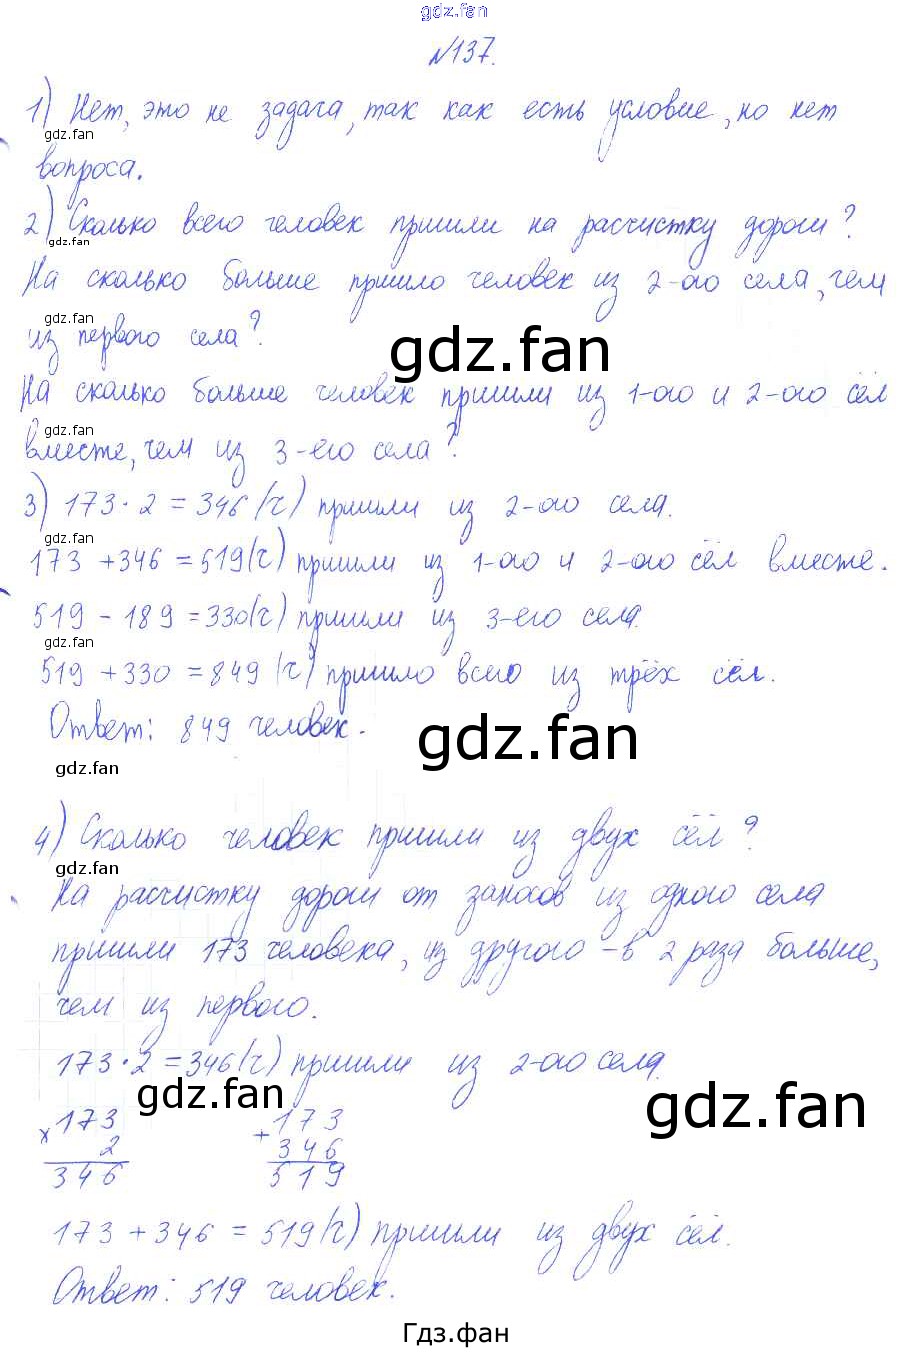 gdz.fan
№137.
1) Нет, это не задача, так как есть условие, но нет
gdz.fan
вопроса.
2) Сколько всего человек пришли на расчистку дороги?
gdz.fan
На сколько больше пришло человек из 2-ого села, чем
gdz.fan
из первого села?
gdz.fan
На сколько больше человек пришли из 1-ого и 2-ого сёл
gdz.fan
вместе, чем из 3-его села?
3) 173·2=346(ч) пришли из 2-ого села.
gdz.fan
173+346=519(ч) пришли из 1-ого и 2-ого сёл вместе.
519-189=330(ч) пришли из 3-его села.
gdz.fan
519+330=849(ч) пришло всего из трёх сёл.
Ответ: 849 человек.
gdz.fan
gdz.fan
4) Сколько человек пришли из двух сёл?
gdz.fan
На расчистку дороги от заносов из одного села
пришли 173 человека, из другого - в 2 раза больше,
чем из первого.
173·2=346(ч) пришли из 2-ого села.
gdz.fan
gdz.fan
×173 +173
2 346
346 519
173+346=519(ч) пришли из двух сёл.
Ответ: 519 человек.
Гдз.фан